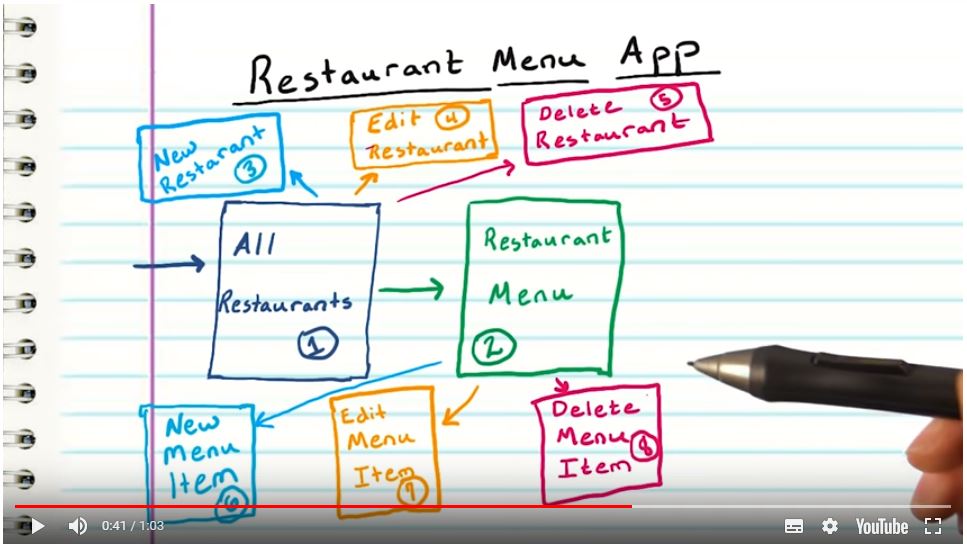 Restaurant Menu App
New
Restarant
3
Edit 4
Restaurant
Delete 5
Restaurant
All
Restaurants
1
Restaurant
Menu
2
New
Menu
Item
6
Edit
Menu
Item
7
Delete
Menu
Item
8
0:41 / 1:03
YouTube